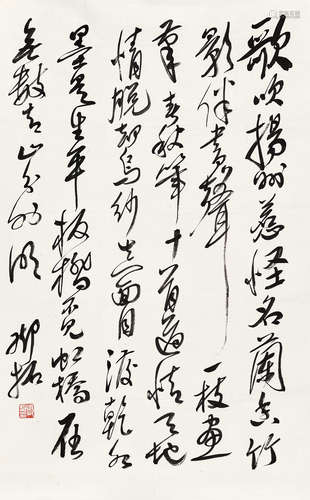 歌吹揚州惹怪名蘭香竹
影伴書聲一枝畫
筆春秋筆十首道情天地
情脫却烏紗真面目潑乾水
墨是生平板橋不見虹橋在
無數青山分外明 鄧拓